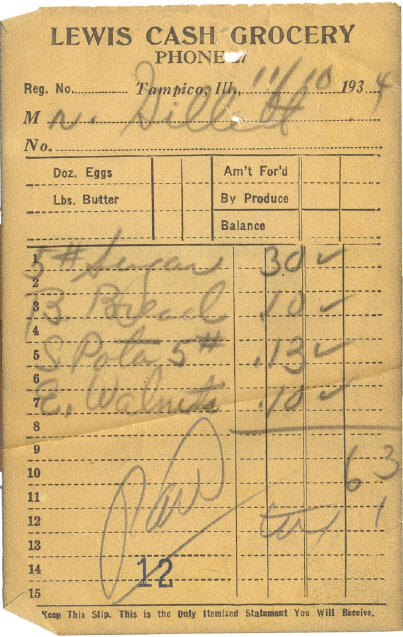 LEWIS CASH GROCERY
PHONE 27
Reg. No. Tampico, Ill., 11/10 1934
Mr. Gillett
No.
Doz. Eggs Am't For'd
Lbs. Butter By Produce
Balance
1 5# Sugar 30 ✓
2
3 B Bread .10 ✓
4
5 S Pota 5# .13 ✓
6
7 E. Walnuts .10 ✓
8
9
10 63
11
12 tax 1
13 Paid
14 12
15
Keep This Slip. This is the Only Itemized Statement You Will Receive.